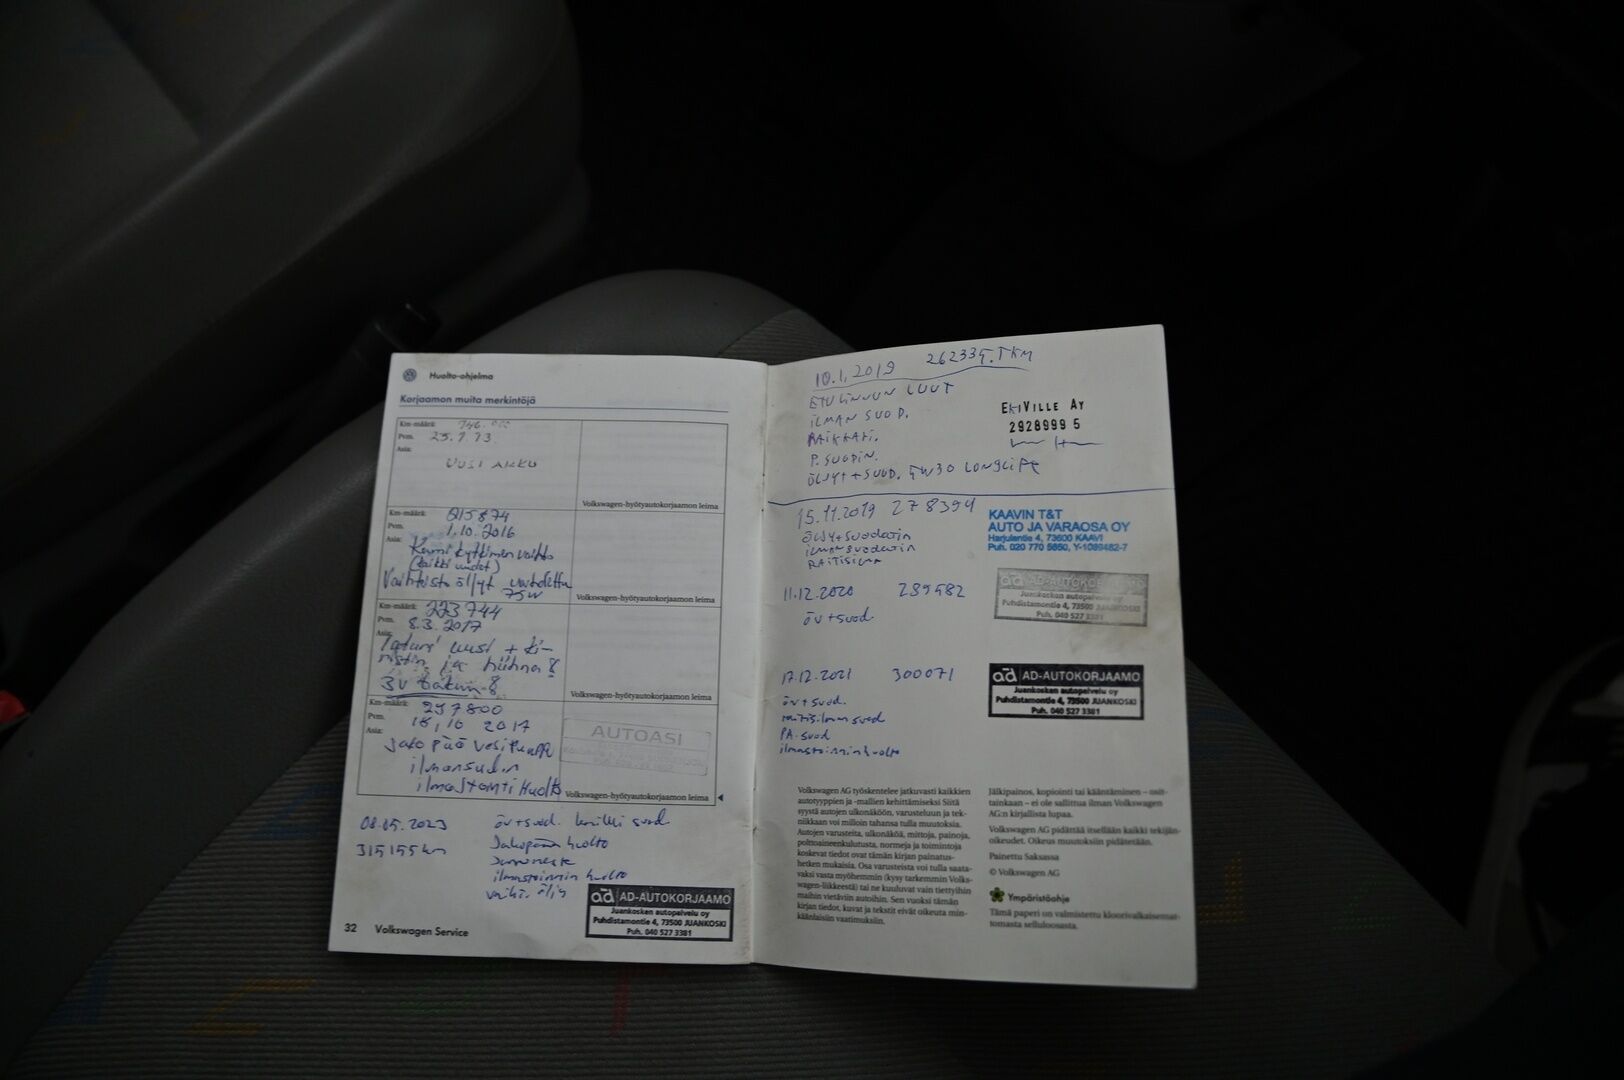 Huolto-ohjelma
Korjaamon muita merkintöjä
Km-määrä: 146.000
Pvm. 25.7.13
Asia:
UUSI AKKU
Volkswagen-hyötyautokorjaamon leima
Km-määrä: 215874
Pvm. 1.10.2016
Asia:
kytkimen vaihto
(kaikki uudet)
Vaihteisto öljyt vaihdettu
75W
Volkswagen-hyötyautokorjaamon leima
Km-määrä: 223744
Pvm. 8.3.2017
Asia:
Laturi uusi + ki-
ristin ja hihna
3v takuu
Volkswagen-hyötyautokorjaamon leima
Km-määrä: 237800
Pvm. 18.10 2017
Asia: Jako pää vesipumppu
ilmansuodin
ilmastointi Huolto
AUTOASI
Volkswagen-hyötyautokorjaamon leima
08.05.2023 öv+suod. kaikki suod
315155 km Jakopään huolto
Jarruneste
ilmastoinnin huolto
vaiht. öljy
ad AD-AUTOKORJAAMO
Juankosken autopalvelu oy
Puhdistamontie 4, 73500 JUANKOSKI
Puh. 040 527 3381
32 Volkswagen Service
10.1.2019 262334.TKM
ETULINNUN LUUT
ILMAN SUOD.
RAIKKATI.
P.SUODIN.
ÖLJYT+SUOD. 5W30 LONGLIFE
EKIVILLE AY
2928999 5
15.11.2019 278394
ÖLJY+SUODATIN
ILMANSUODATIN
RAITISILMA
KAAVIN T&T
AUTO JA VARAOSA OY
Harjulantie 4, 73600 KAAVI
Puh. 020 770 5850, Y-1089482-7
11.12.2020 289582
öv+suod
ad AD-AUTOKORJAAMO
Juankosken autopalvelu oy
Puhdistamontie 4, 73500 JUANKOSKI
Puh. 040 527 3381
17.12.2021 300071
öv+suod.
raitisilman suod
PA.suod
ilmastoinnin huolto
ad AD-AUTOKORJAAMO
Juankosken autopalvelu oy
Puhdistamontie 4, 73500 JUANKOSKI
Puh. 040 527 3381
Volkswagen AG työskentelee jatkuvasti kaikkien
autotyyppien ja -mallien kehittämiseksi Siitä
syystä autojen ulkonäköön, varusteluun ja tek-
niikkaan voi milloin tahansa tulla muutoksia.
Autojen varusteita, ulkonäköä, mittoja, painoja,
polttoaineenkulutusta, normeja ja toimintoja
koskevat tiedot ovat tämän kirjan painatus-
hetken mukaisia. Osa varusteista voi tulla saata-
vaksi vasta myöhemmin (kysy tarkemmin Volks-
wagen-liikkeestä) tai ne kuuluvat vain tiettyihin
maihin vietäviin autoihin. Sen vuoksi tämän
kirjan tiedot, kuvat ja tekstit eivät oikeuta min-
käänlaisiin vaatimuksiin.
Jälkipainos, kopiointi tai kääntäminen – osit-
tainkaan – ei ole sallittua ilman Volkswagen
AG:n kirjallista lupaa.
Volkswagen AG pidättää itsellään kaikki tekijän-
oikeudet. Oikeus muutoksiin pidätetään.
Painettu Saksassa
© Volkswagen AG
Ympäristöohje
Tämä paperi on valmistettu kloorivalkaisemat-
tomasta selluloosasta.